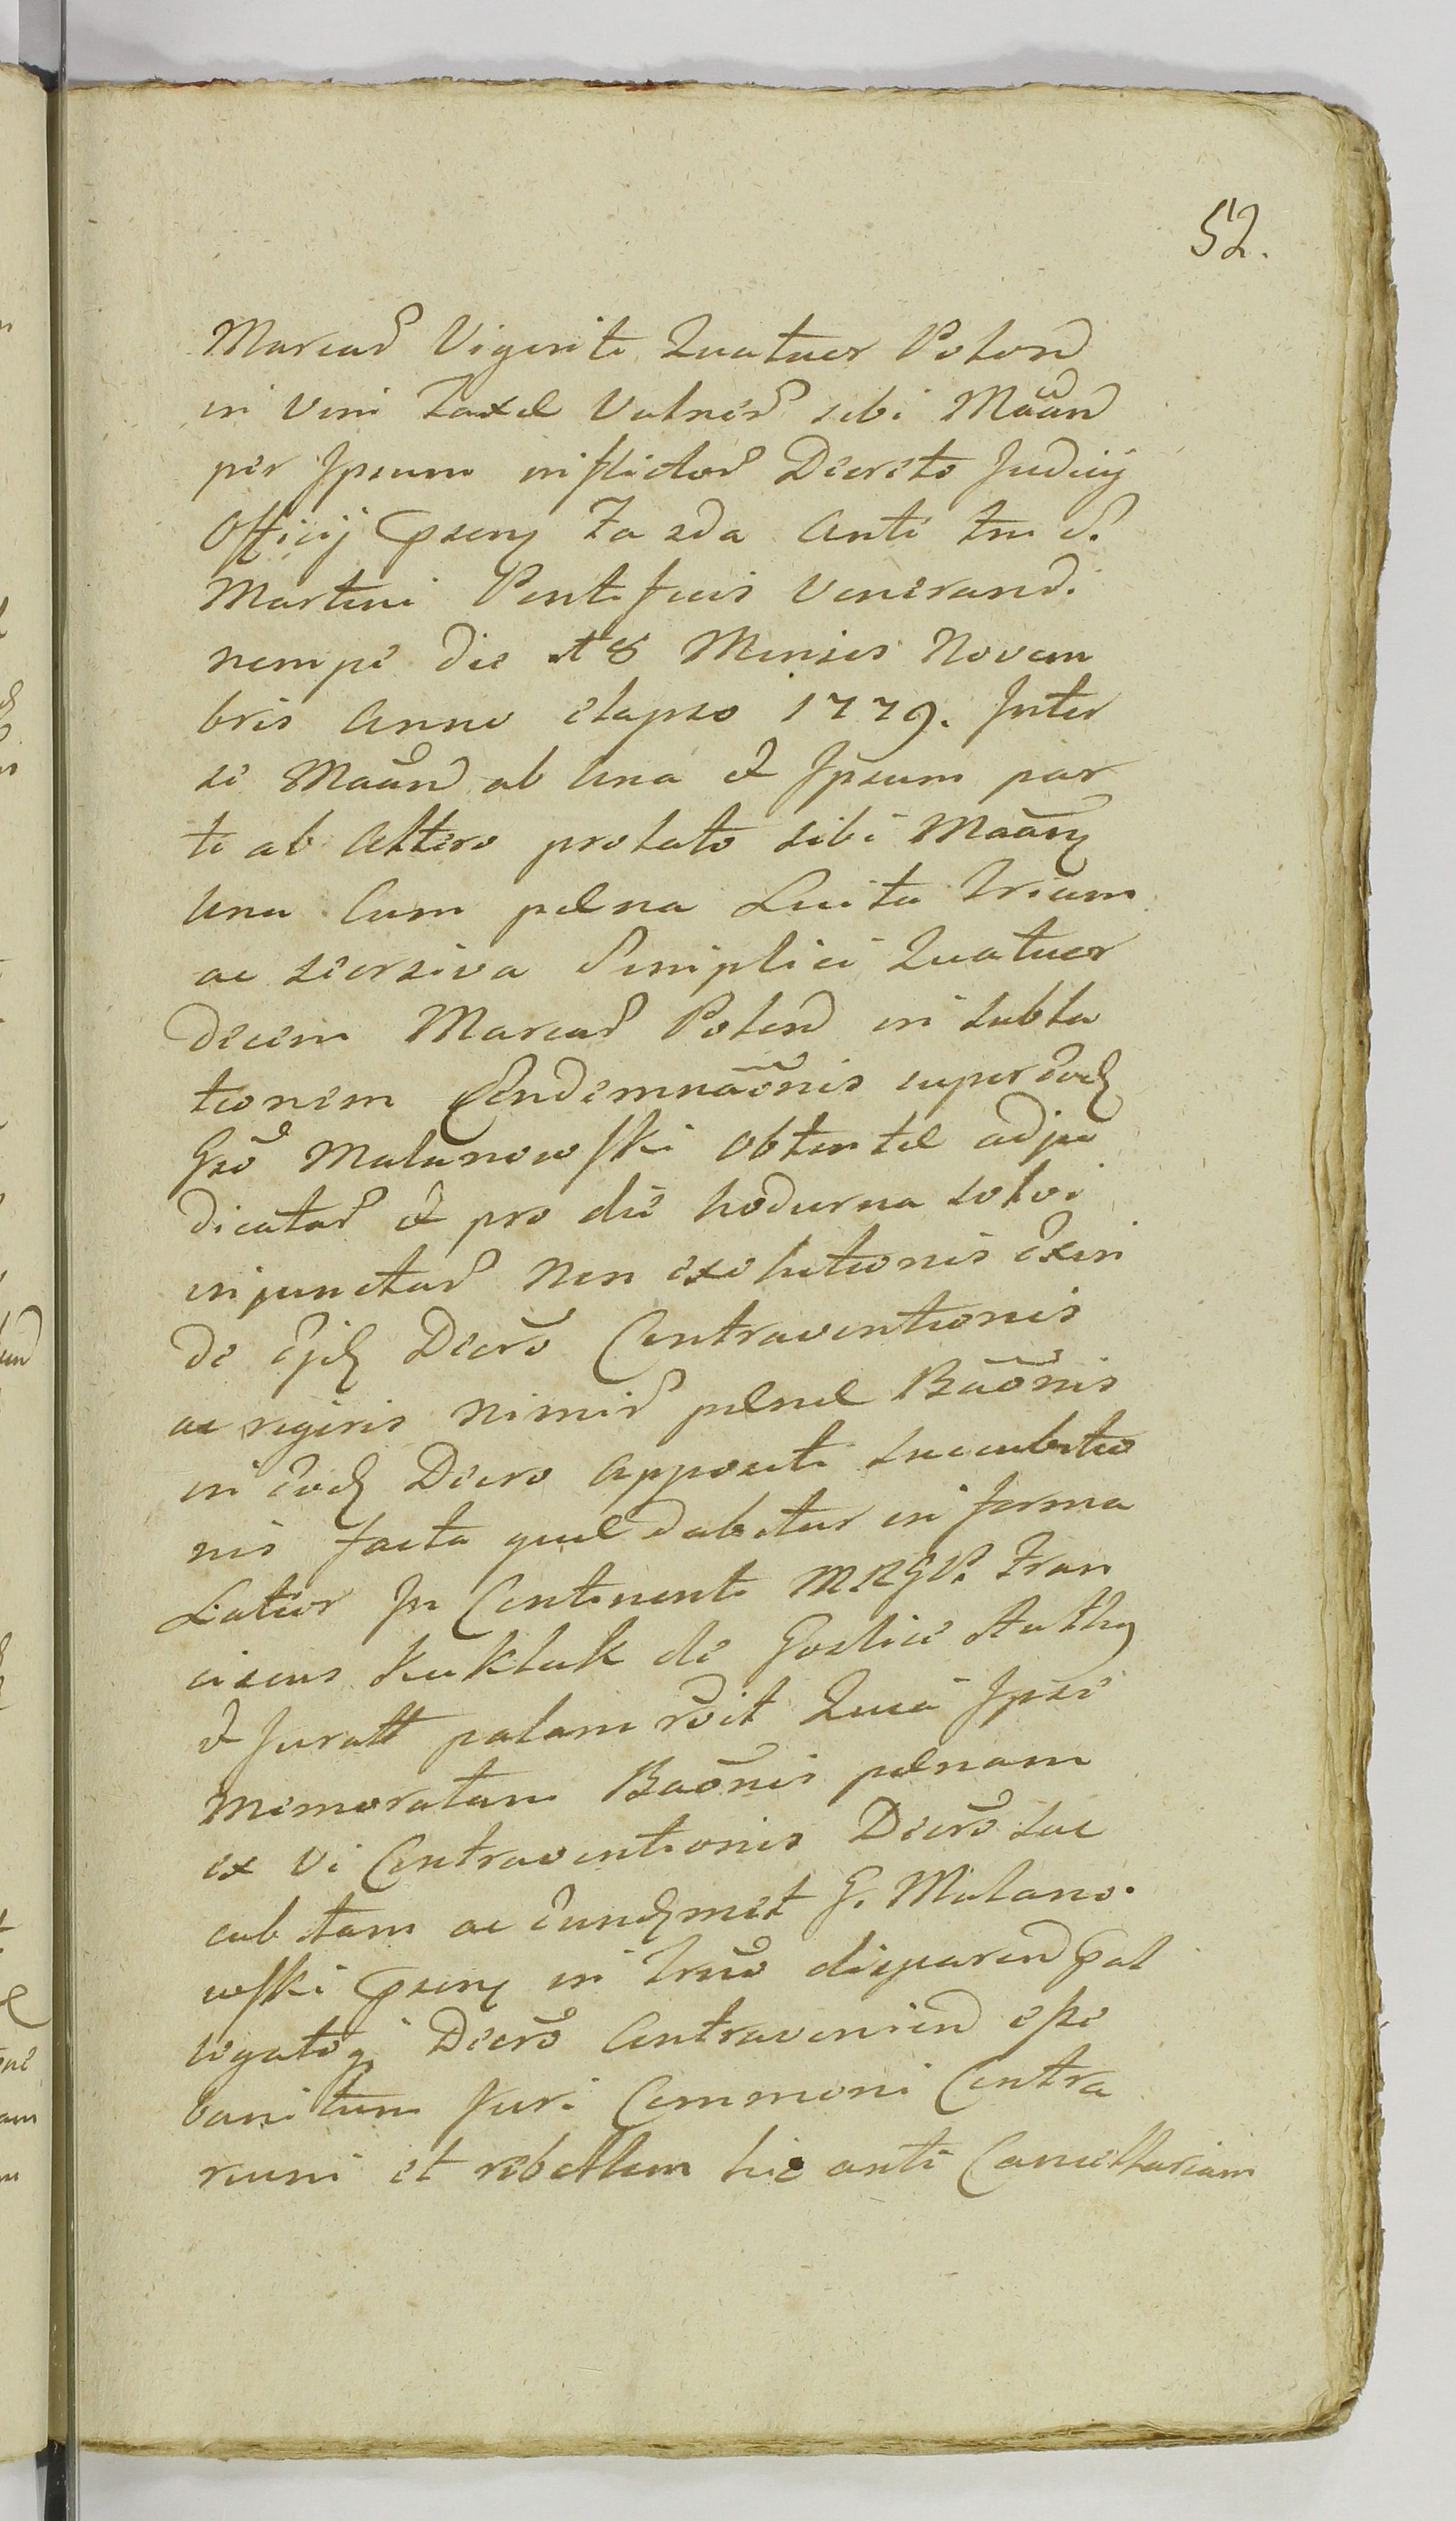 52.
Marcar Viginti Quatuor Polon
in vim Taxæ Vulner sibi Maan
per Ipsum inflictor Decreto Judicij
Officij psen Fa 2da Ante tm S.
Martini Pontificis Venerand.
nempe die 8 Mensis Novem
bris Anno elapso 1779. Inter
se Maan ab una & Ipsum par
te ab Altero prolato sibi Maan
una Cum pæna Luita Trium
ac seorsiva Simplici Quatuor
decem Marcar Polon in subla
tionem Condemnaonis super eod
Gso Malanowski obtentæ adju
dicatar & pro die hodierna solvi
injunctar Non exolutionis exin
de ejsd Decro Contraventionis
ac rigoris nimir pænæ Baonis
in eod Decro appositi succubitio
nis facta quæ dabitur in forma
Latior In Continenti MRGV. Fran
ciscus Kuklak de Gorlice Auth
& Juratt palam roit Quia Ipse
Memoratam Baonis pænam
ex vi Contraventionis Decro suc
cubitam ac eundmet G. Malano.
wski psen in Trno disparen pal
legatoq Decro Contravenien esse
banitum Juri Commoni Contra
rium et rebellem hic ante Cancellariam